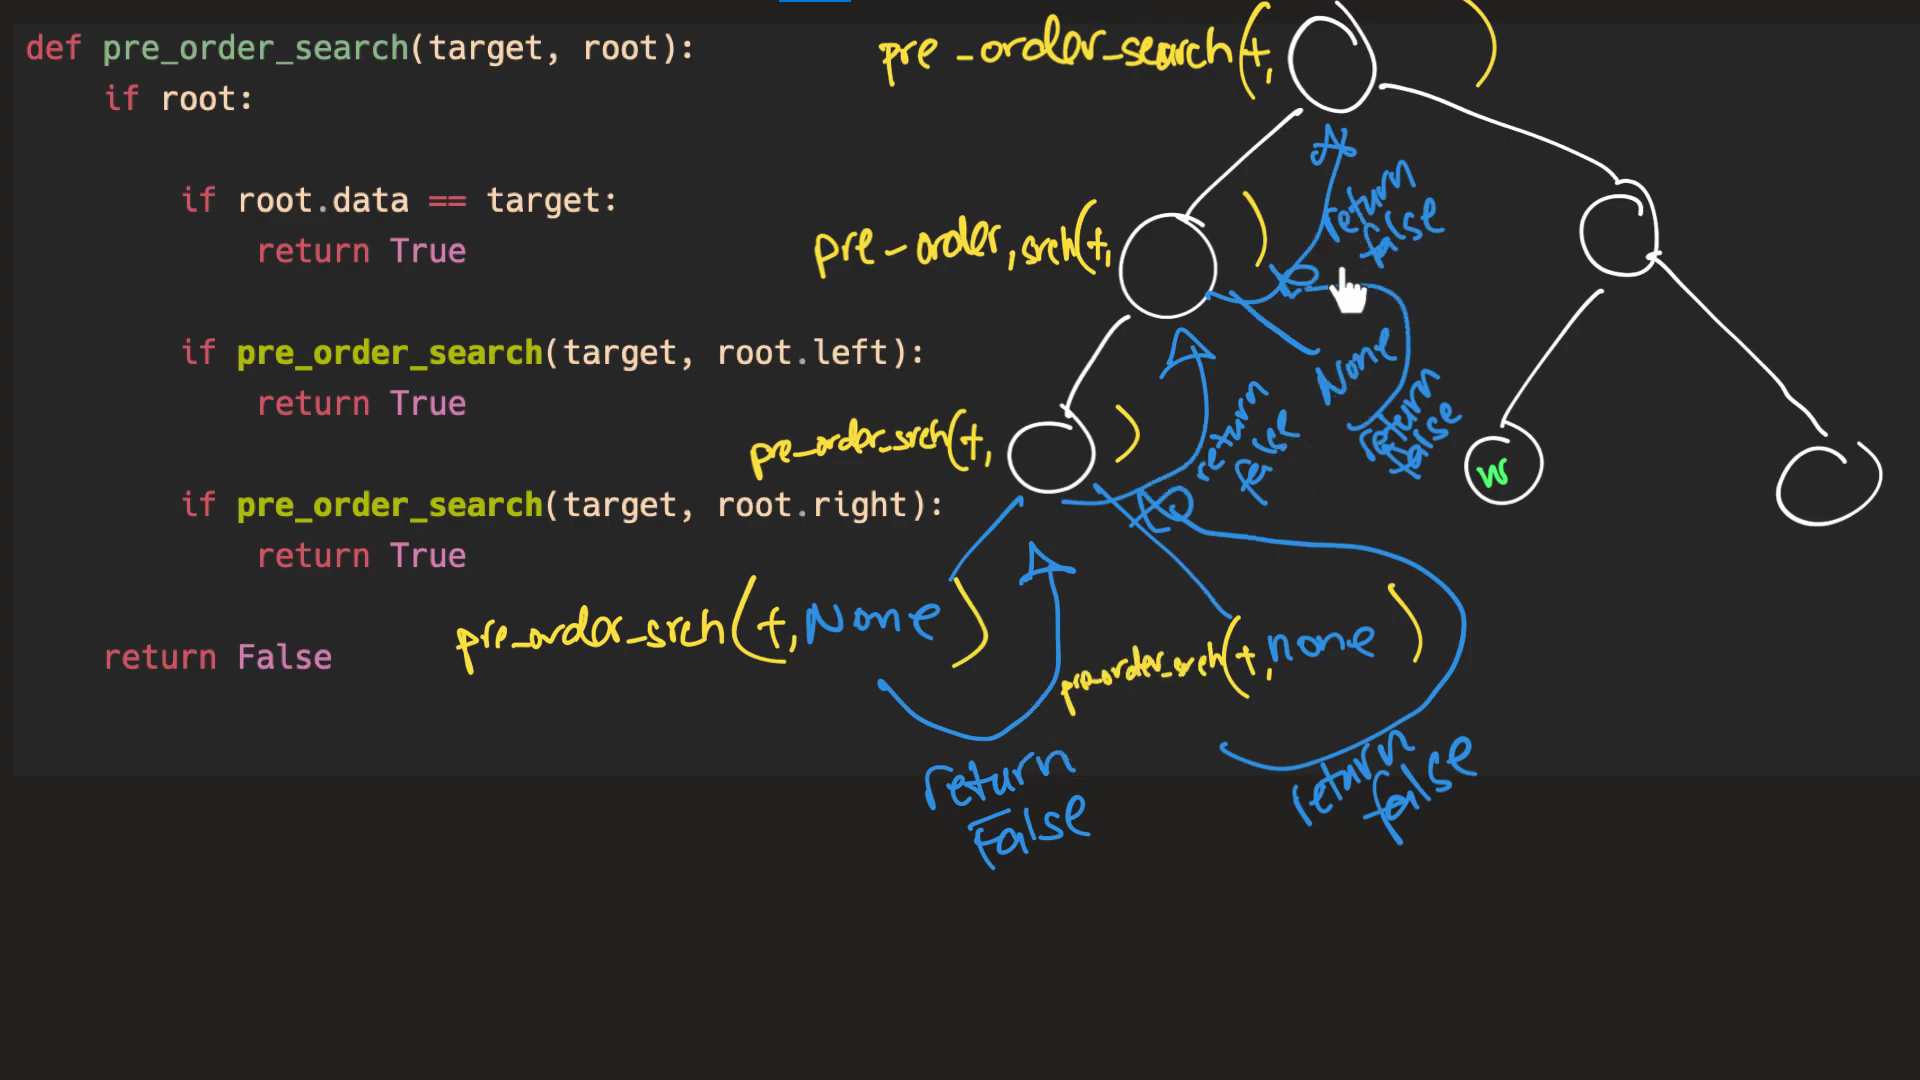 def pre_order_search(target, root):
if root:
if root.data == target:
return True
if pre_order_search(target, root.left):
return True
if pre_order_search(target, root.right):
return True
return False
pre_order_search(t, )
pre-order_srch(t, )
return
false
None
return
false
pre_order_srch(t, )
return
false
w
pre_order_srch(t, None)
pre_order_srch(t, none)
return
False
return
false